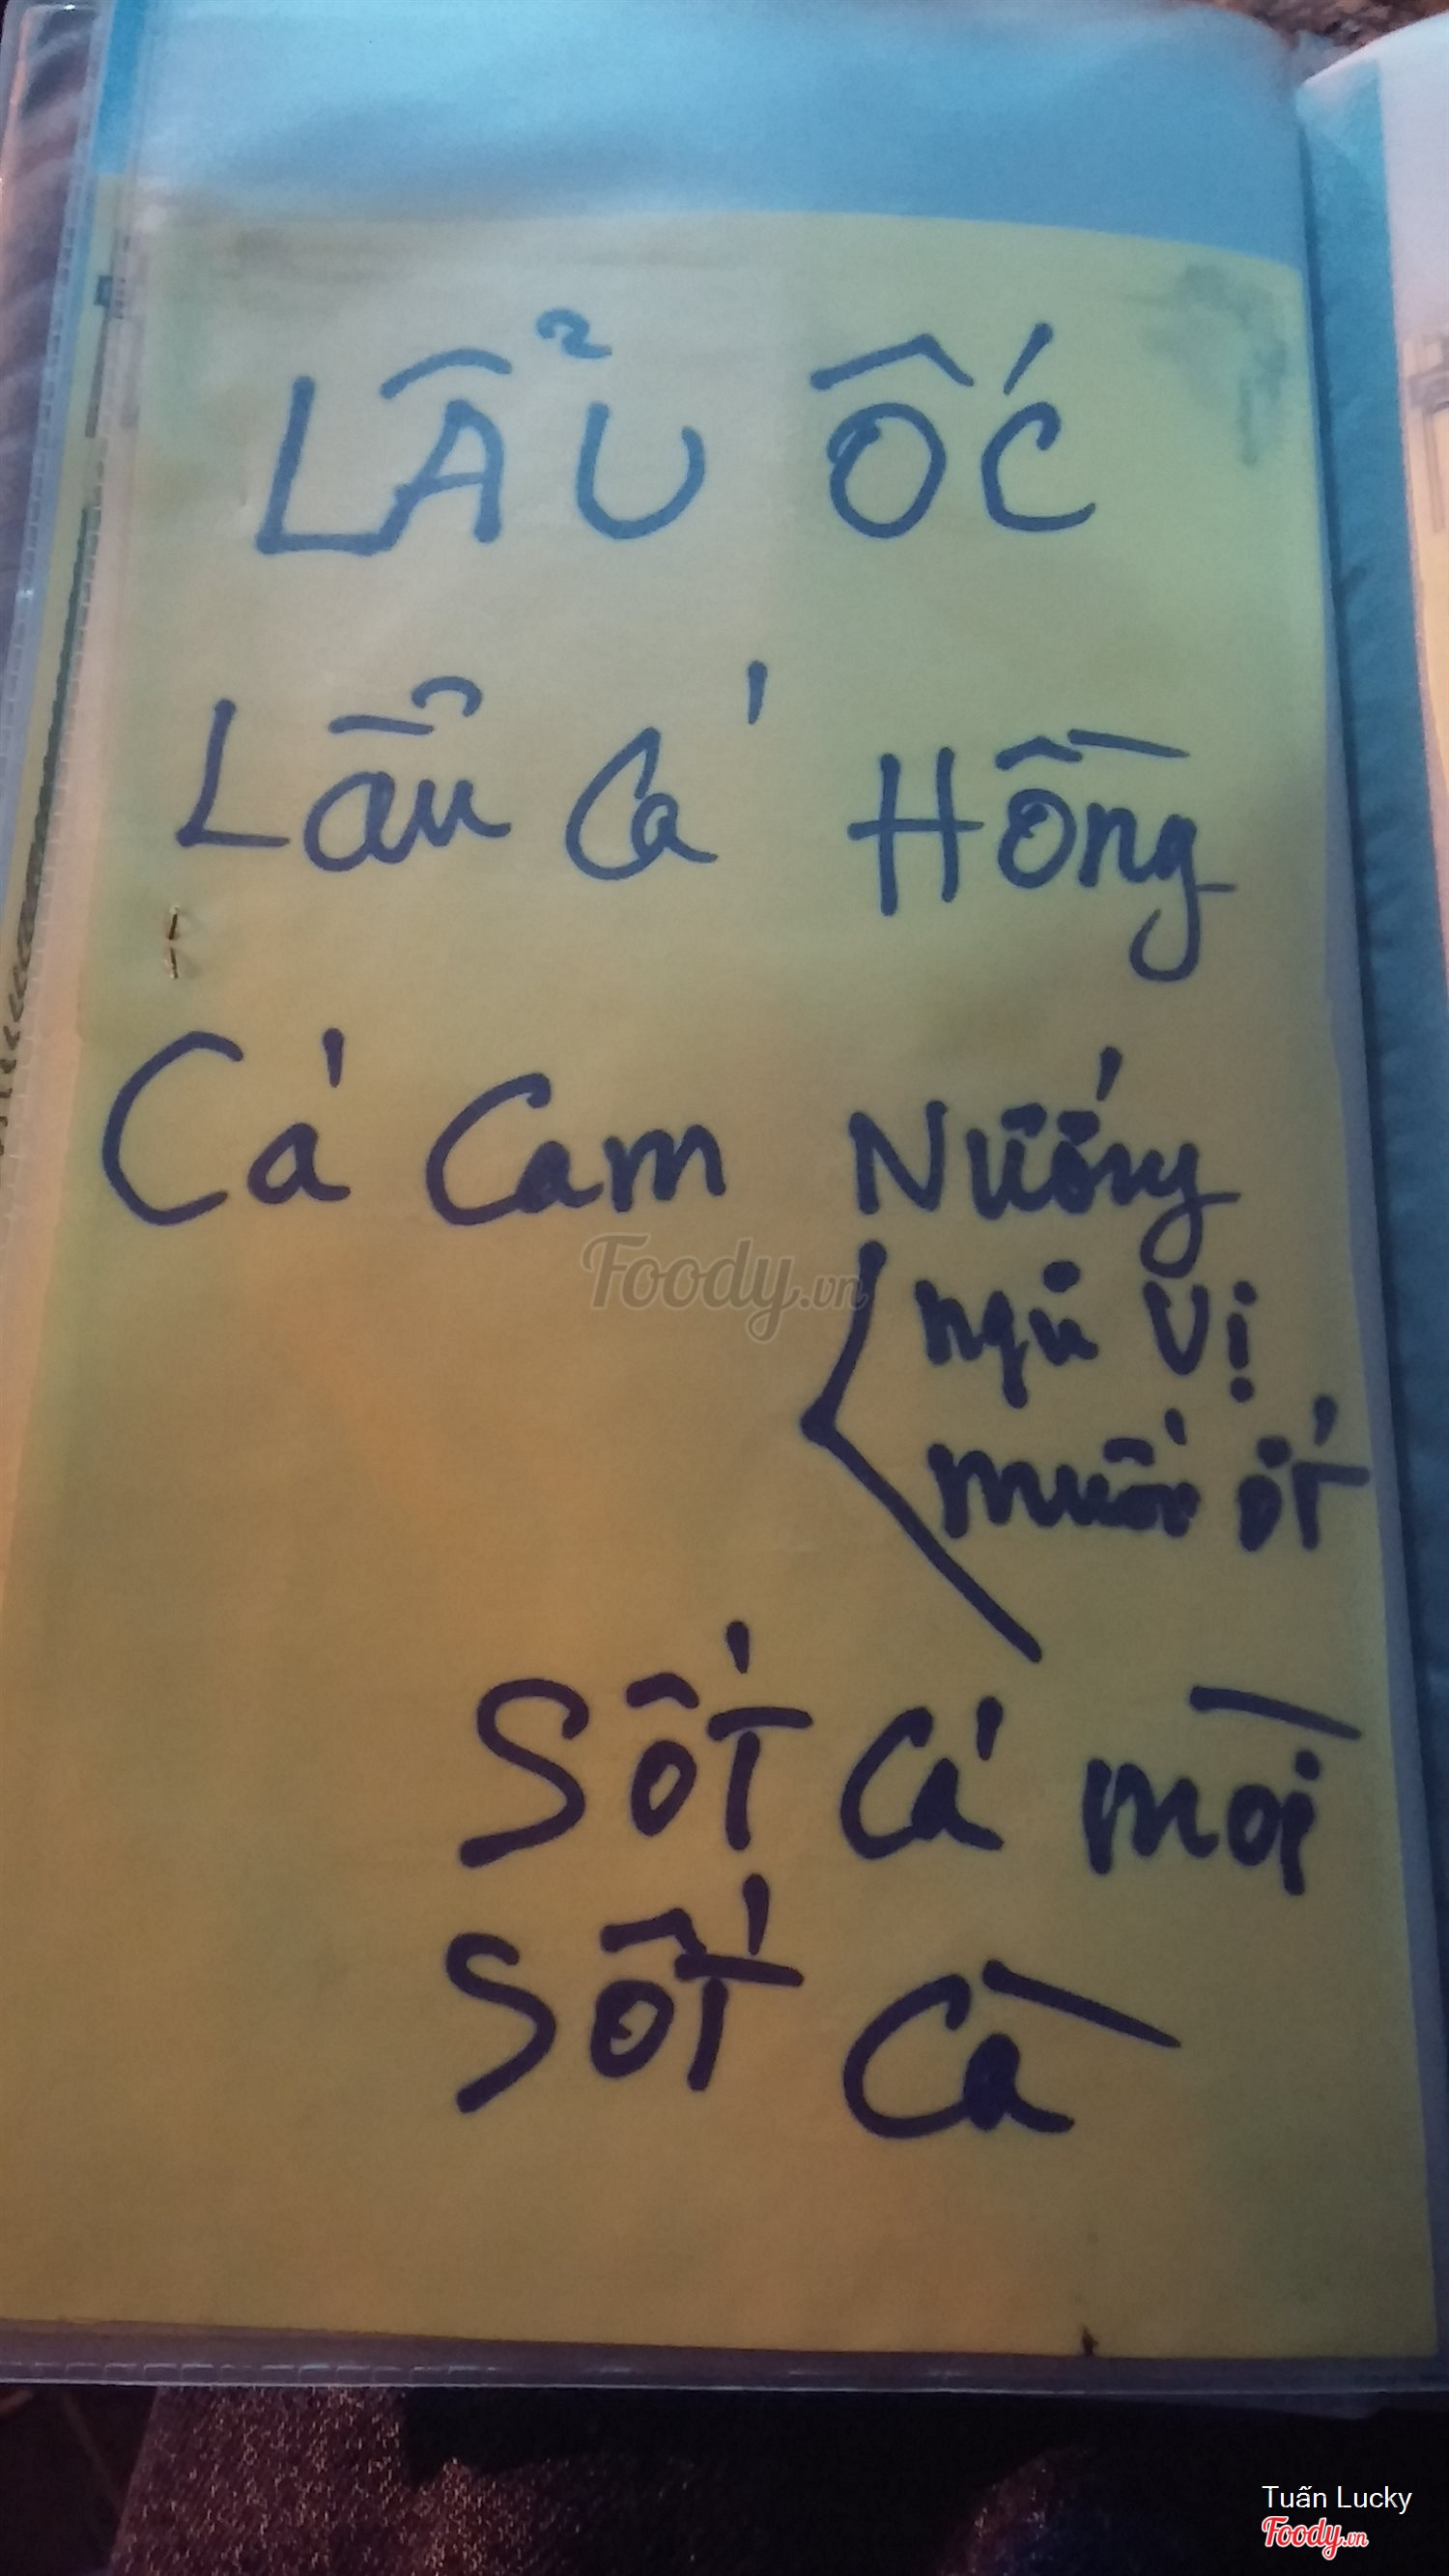 LẨU ỐC
Lẩu Cá Hồng
Cá Cam Nướng
ngũ vị
muối ớt
SỐT Cá mòi
SỐT Cà
Foody.vn
Tuấn Lucky
Foody.vn